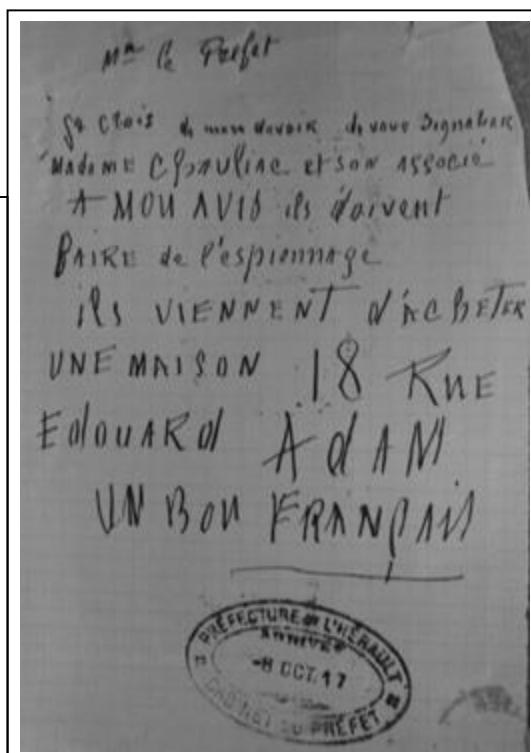 Mr le Prefet
Je crois de mon devoir de vous signaler
MADAME Chauliac et son associé
A MON AVIS ils doivent
FAIRE de l'espionnage
ils VIENNENT d'ACHETER
UNE MAISON 18 RUE
EDOUARD ADAM
UN BON FRANÇAIS
PRÉFECTURE DE L'HÉRAULT
ARRIVÉE
-8 OCT. 17
CABINET DU PRÉFET